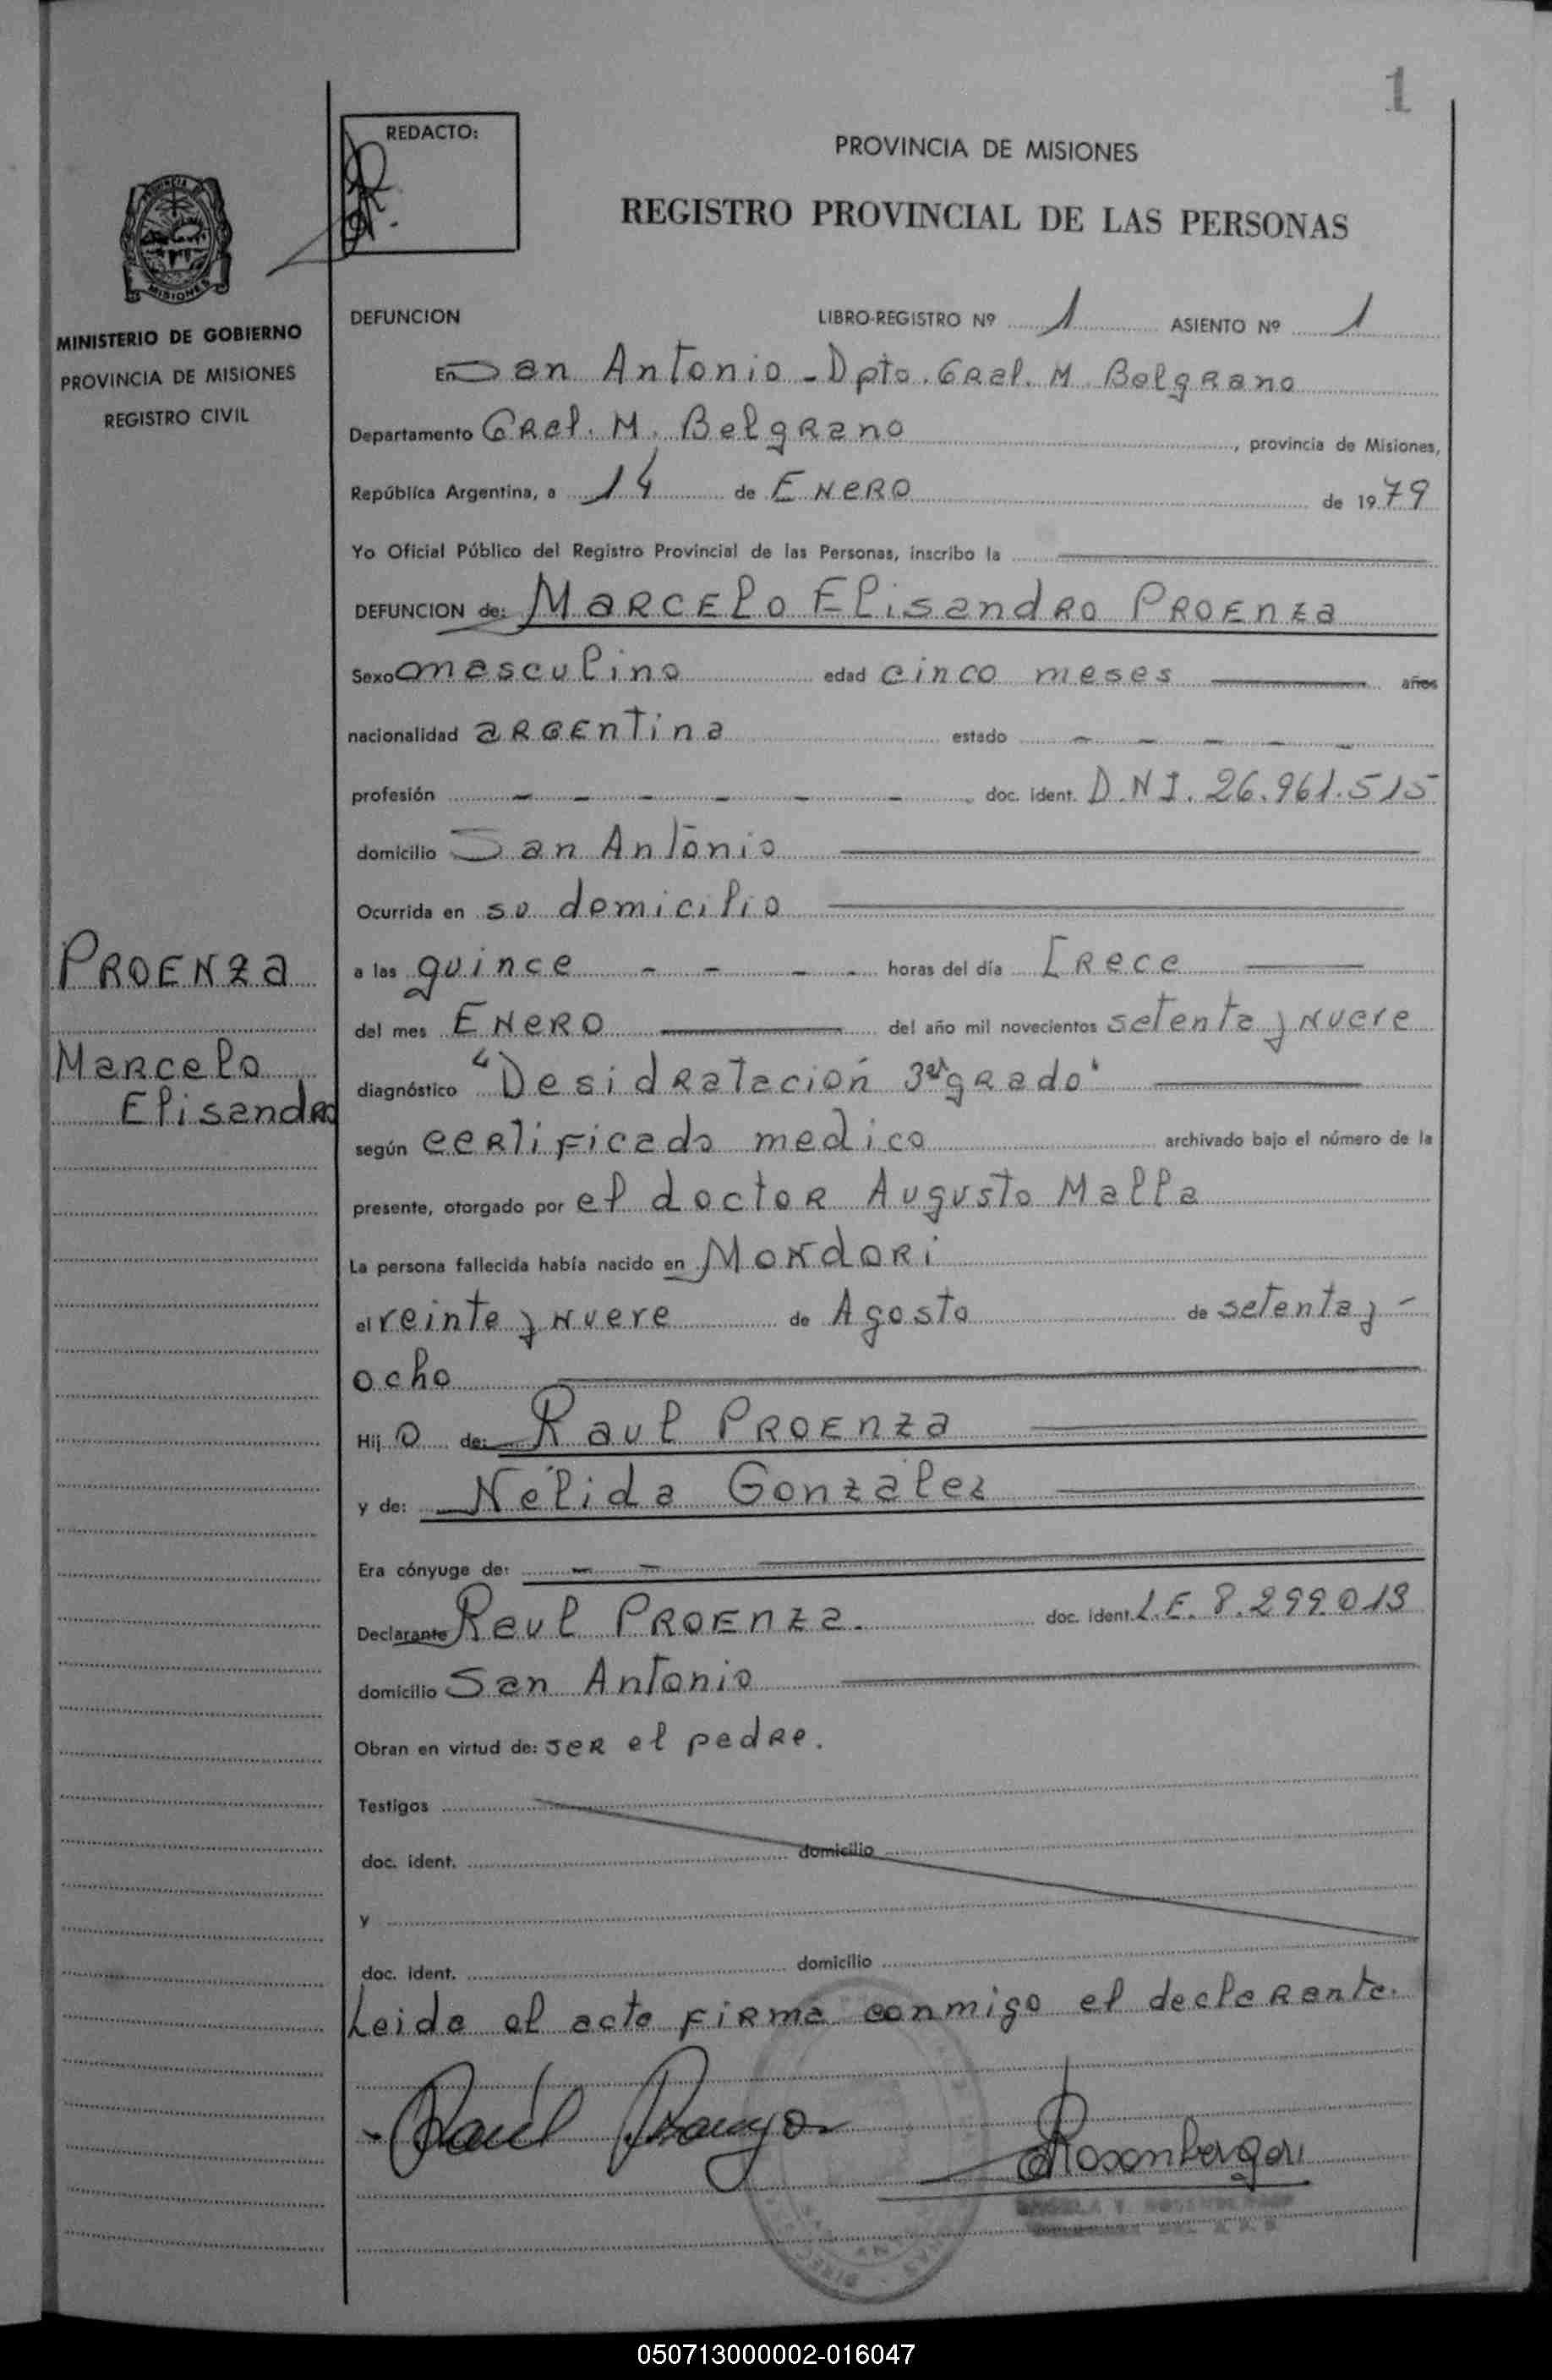 1
REDACTO:
PROVINCIA DE MISIONES
REGISTRO PROVINCIAL DE LAS PERSONAS
MISIONES
MINISTERIO DE GOBIERNO
PROVINCIA DE MISIONES
REGISTRO CIVIL
DEFUNCION LIBRO-REGISTRO Nº 1 ASIENTO Nº 1
En San Antonio - Dpto. Gral. M. Belgrano
Departamento Gral. M. Belgrano, provincia de Misiones,
República Argentina, a 14 de Enero de 1979
Yo Oficial Público del Registro Provincial de las Personas, inscribo la
DEFUNCION de: Marcelo Elisandro Proenza
Sexo masculino edad cinco meses años
nacionalidad argentina estado - - - - -
profesión - - - - - - -, doc. ident. D.N.I. 26.961.515
domicilio San Antonio
Ocurrida en su domicilio
PROENZA
Marcelo
Elisandro
a las quince - - - - horas del día trece
del mes Enero del año mil novecientos setenta y nueve
diagnóstico "Desidratación 3er grado"
según certificado medico archivado bajo el número de la
presente, otorgado por el doctor Augusto Malla
La persona fallecida había nacido en Mondori
el veinte y nueve de Agosto de setenta y -
ocho
Hijo de: Raul Proenza
y de: Nélida González
Era cónyuge de: - -
Declarante Raul Proenza. doc. ident. L.E. 8.299.013
domicilio San Antonio
Obran en virtud de: ser el padre.
Testigos
doc. ident. domicilio
y
doc. ident. domicilio
Leida el acta firma conmigo el declarante.
Raúl
Rosenberger
050713000002-016047